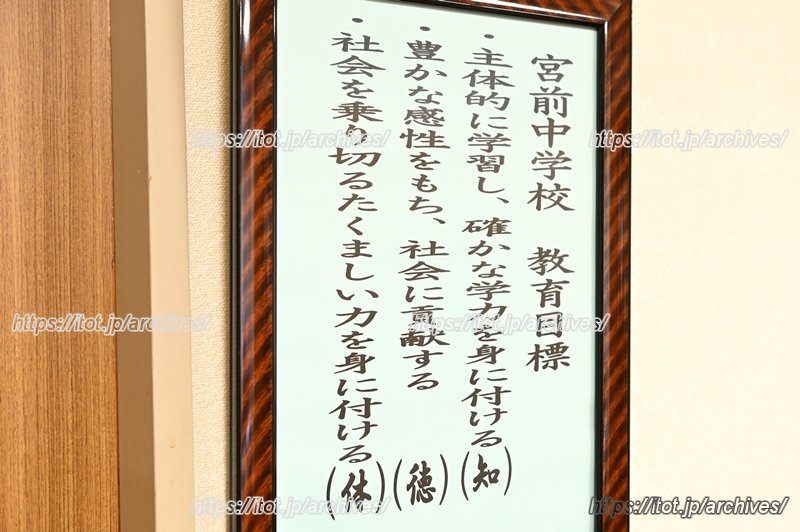 宮前中学校 教育目標
・主体的に学習し、確かな学力を身に付ける(知)
・豊かな感性をもち、社会に貢献する(徳)
・社会を乗り切るたくましい力を身に付ける(体)
https://itot.jp/archives/
https://itot.jp/archives/
https://itot.jp/archives/
https://itot.jp/archives/
https://itot.jp/archives/
https://itot.jp/archives/
https://itot.jp/archives/